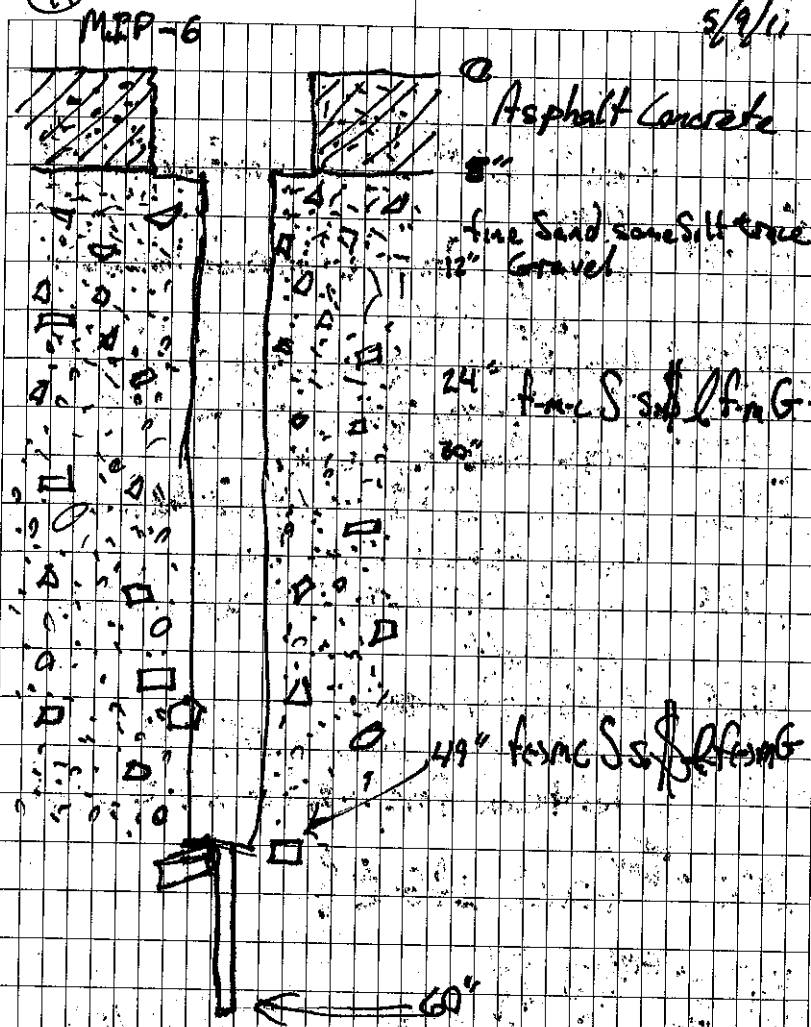 MPP-6
5/9/11
0
Asphalt Concrete
5"
fine Sand some Silt trace
12" Gravel
24" f-m-c S s $ l f-m G
30"
49" f(+)mc S s $ l f(+)m G
60"